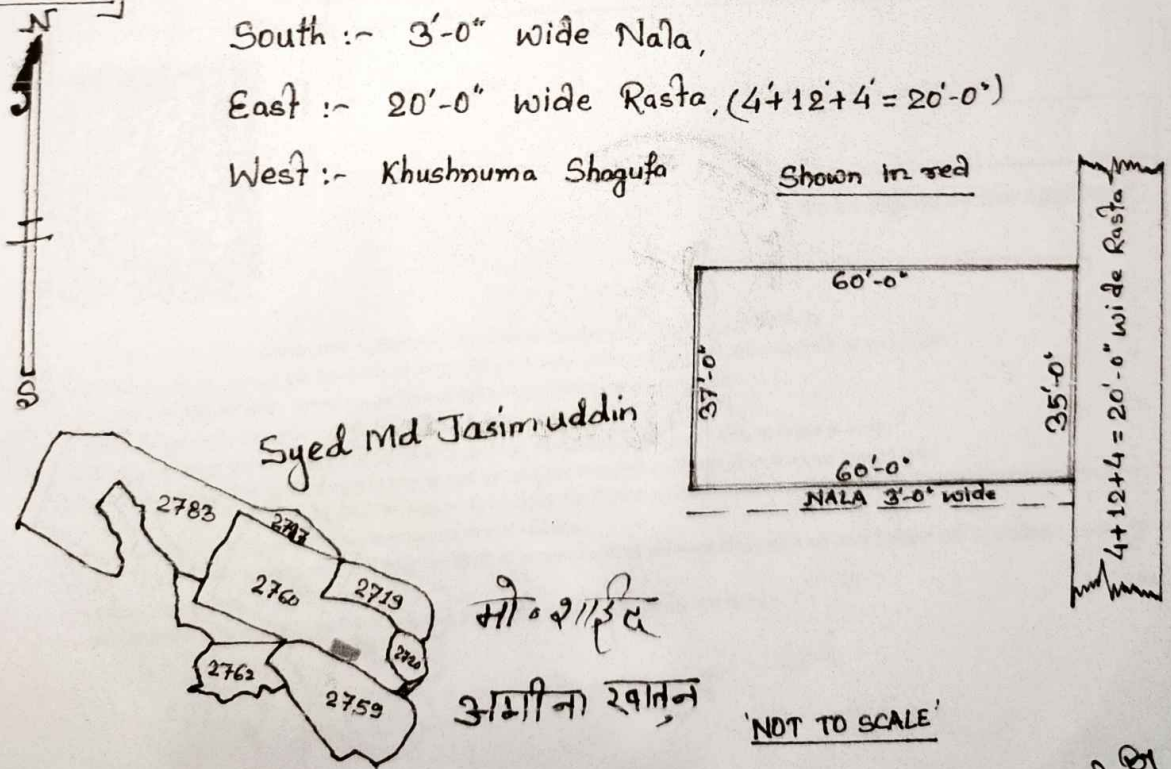 N
South :- 3'-0" wide Nala,
East :- 20'-0" wide Rasta, (4'+12'+4'=20'-0")
West :- Khushnuma Shagufa
Shown in red
60'-0"
37'-0"
35'-0"
60'-0"
NALA 3'-0" wide
4+12+4=20'-0" wide Rasta
S
Syed Md Jasimuddin
2783
2760
2719
2720
2762
2759
मो॰ शाईद
अमीना खातुन
'NOT TO SCALE'
By